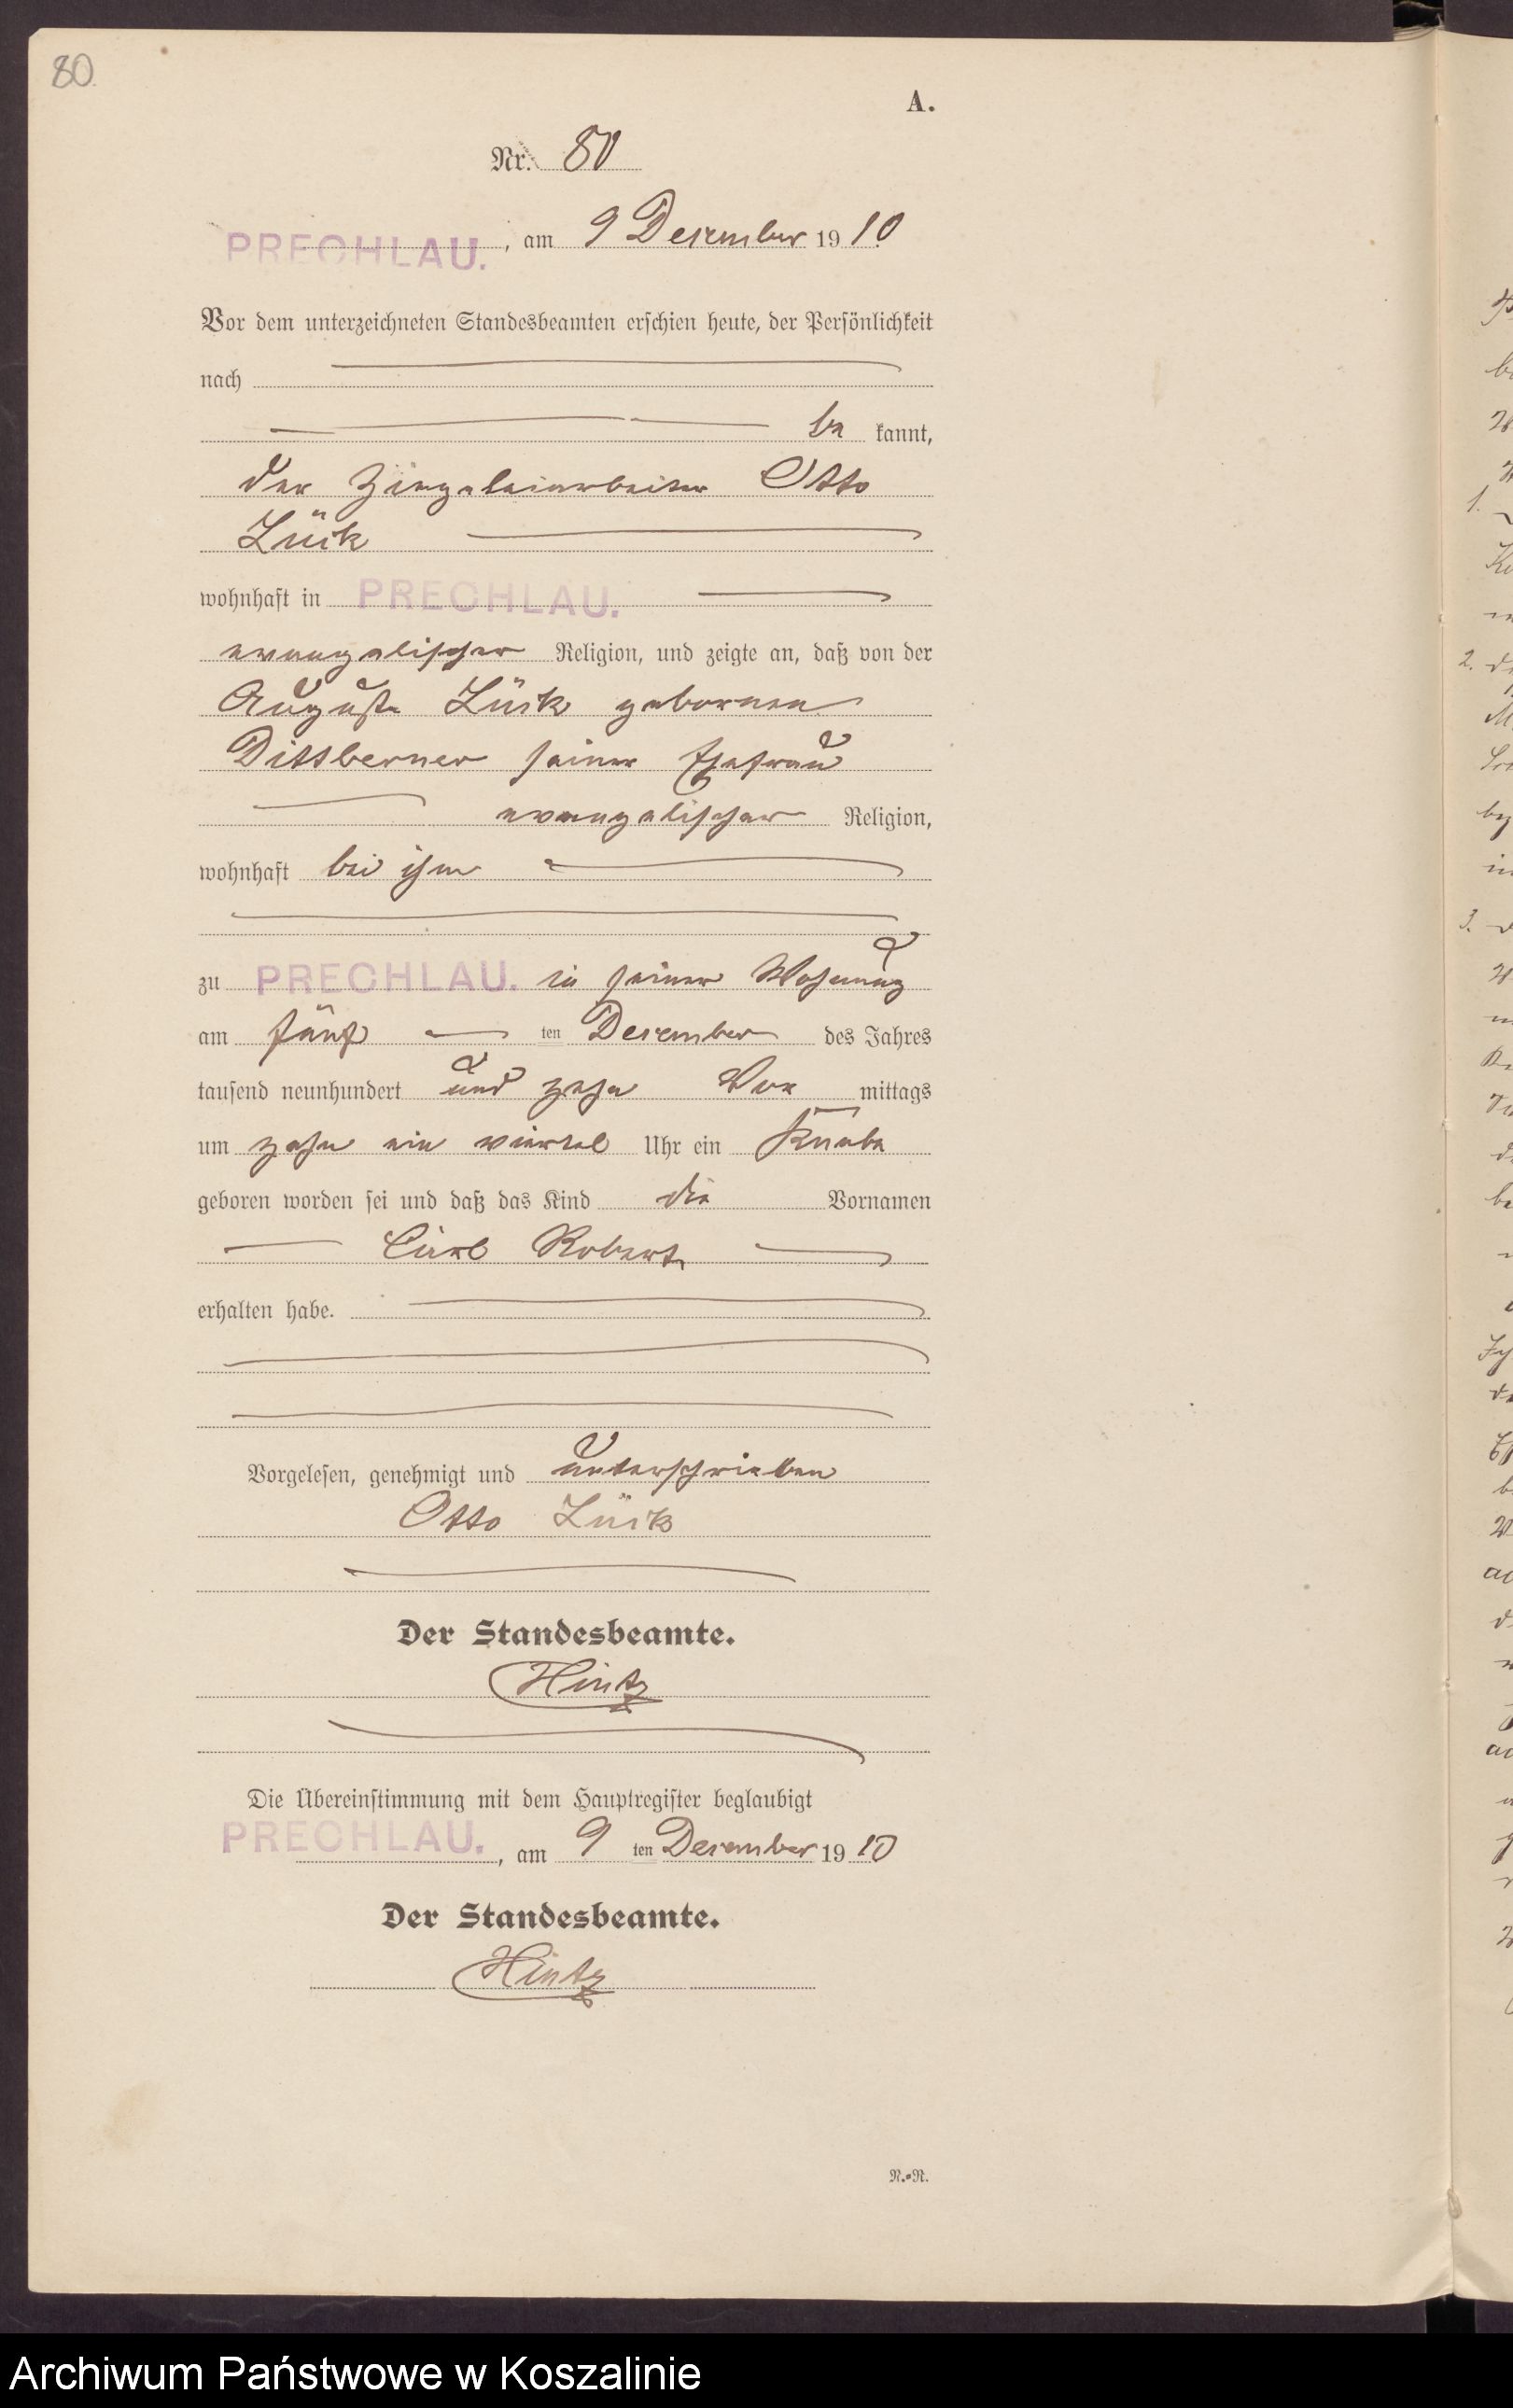 80
A.
Nr. 80
PRECHLAU. , am 9 Dezember 1910
Vor dem unterzeichneten Standesbeamten erschien heute, der Persönlichkeit
nach
be kannt,
der Ziegeleiarbeiter Otto
Lück
wohnhaft in PRECHLAU.
evangelischer Religion, und zeigte an, daß von der
Auguste Lück geborenen
Dittberner seiner Ehefrau
evangelischer Religion,
wohnhaft bei ihm
zu PRECHLAU. in seiner Wohnung
am fünf ten Dezember des Jahres
tausend neunhundert und zehn Vor mittags
um zehn ein viertel Uhr ein Knabe
geboren worden sei und daß das Kind die Vornamen
Robert
erhalten habe.
Vorgelesen, genehmigt und unterschrieben
Otto Lück
Der Standesbeamte.
Hintz
Die Übereinstimmung mit dem Hauptregister beglaubigt
PRECHLAU. , am 9 ten Dezember 1910
Der Standesbeamte.
Hintz
N.=R.
Archiwum Państwowe w Koszalinie